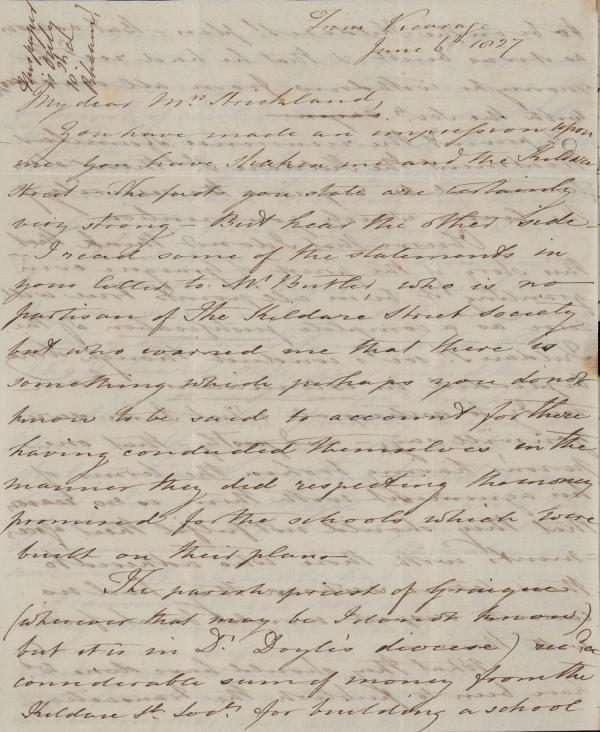 Trim Vicarage
June 6th 1827
My dear Mrs Strickland,
You have made an impression upon
me you have shaken me and the Kildare
Street - The facts you state are certainly
very strong - But hear the other side
- I read some of the statements in
your letter to Mr Butler, who is no
partisan of The Kildare Street Society
but who warned me that there is
something which perhaps you do not
know to be said to account for there
having conducted themselves in the
manner they did respecting the money
promised for the schools which were
built on their plan -
The parish priest of Graigue
(wherever that may be I do not know)
but it is in Dr Doyle's diocese) recd a
considerable sum of money from the
Kildare St. Socy. for building a school